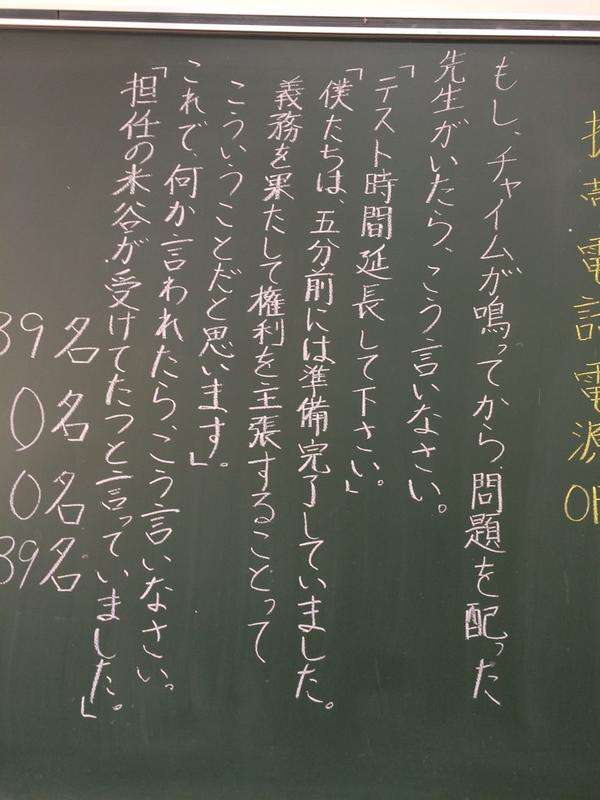 携帯電話電源OF
もし、チャイムが鳴ってから、問題を配った
先生がいたら、こう言いなさい。
「テスト時間延長して下さい。」
「僕たちは、五分前には準備完了していました。
義務を果たして権利を主張することって
こういうことだと思います」。
これで、何か言われたら、こう言いなさい。
「担任の米谷が受けてたつと言っていました。」
39名
0名
0名
39名